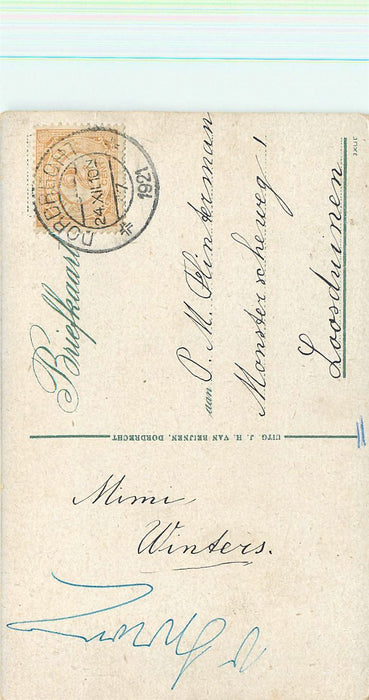 Briefkaart
DORDRECHT
24.XII.10N
7
1921
aan P. M. Flinterman
Monsterscheweg 1
Loosduinen
UITG. J. H. VAN BEIJNEN, DORDRECHT
Mimi
Winters.